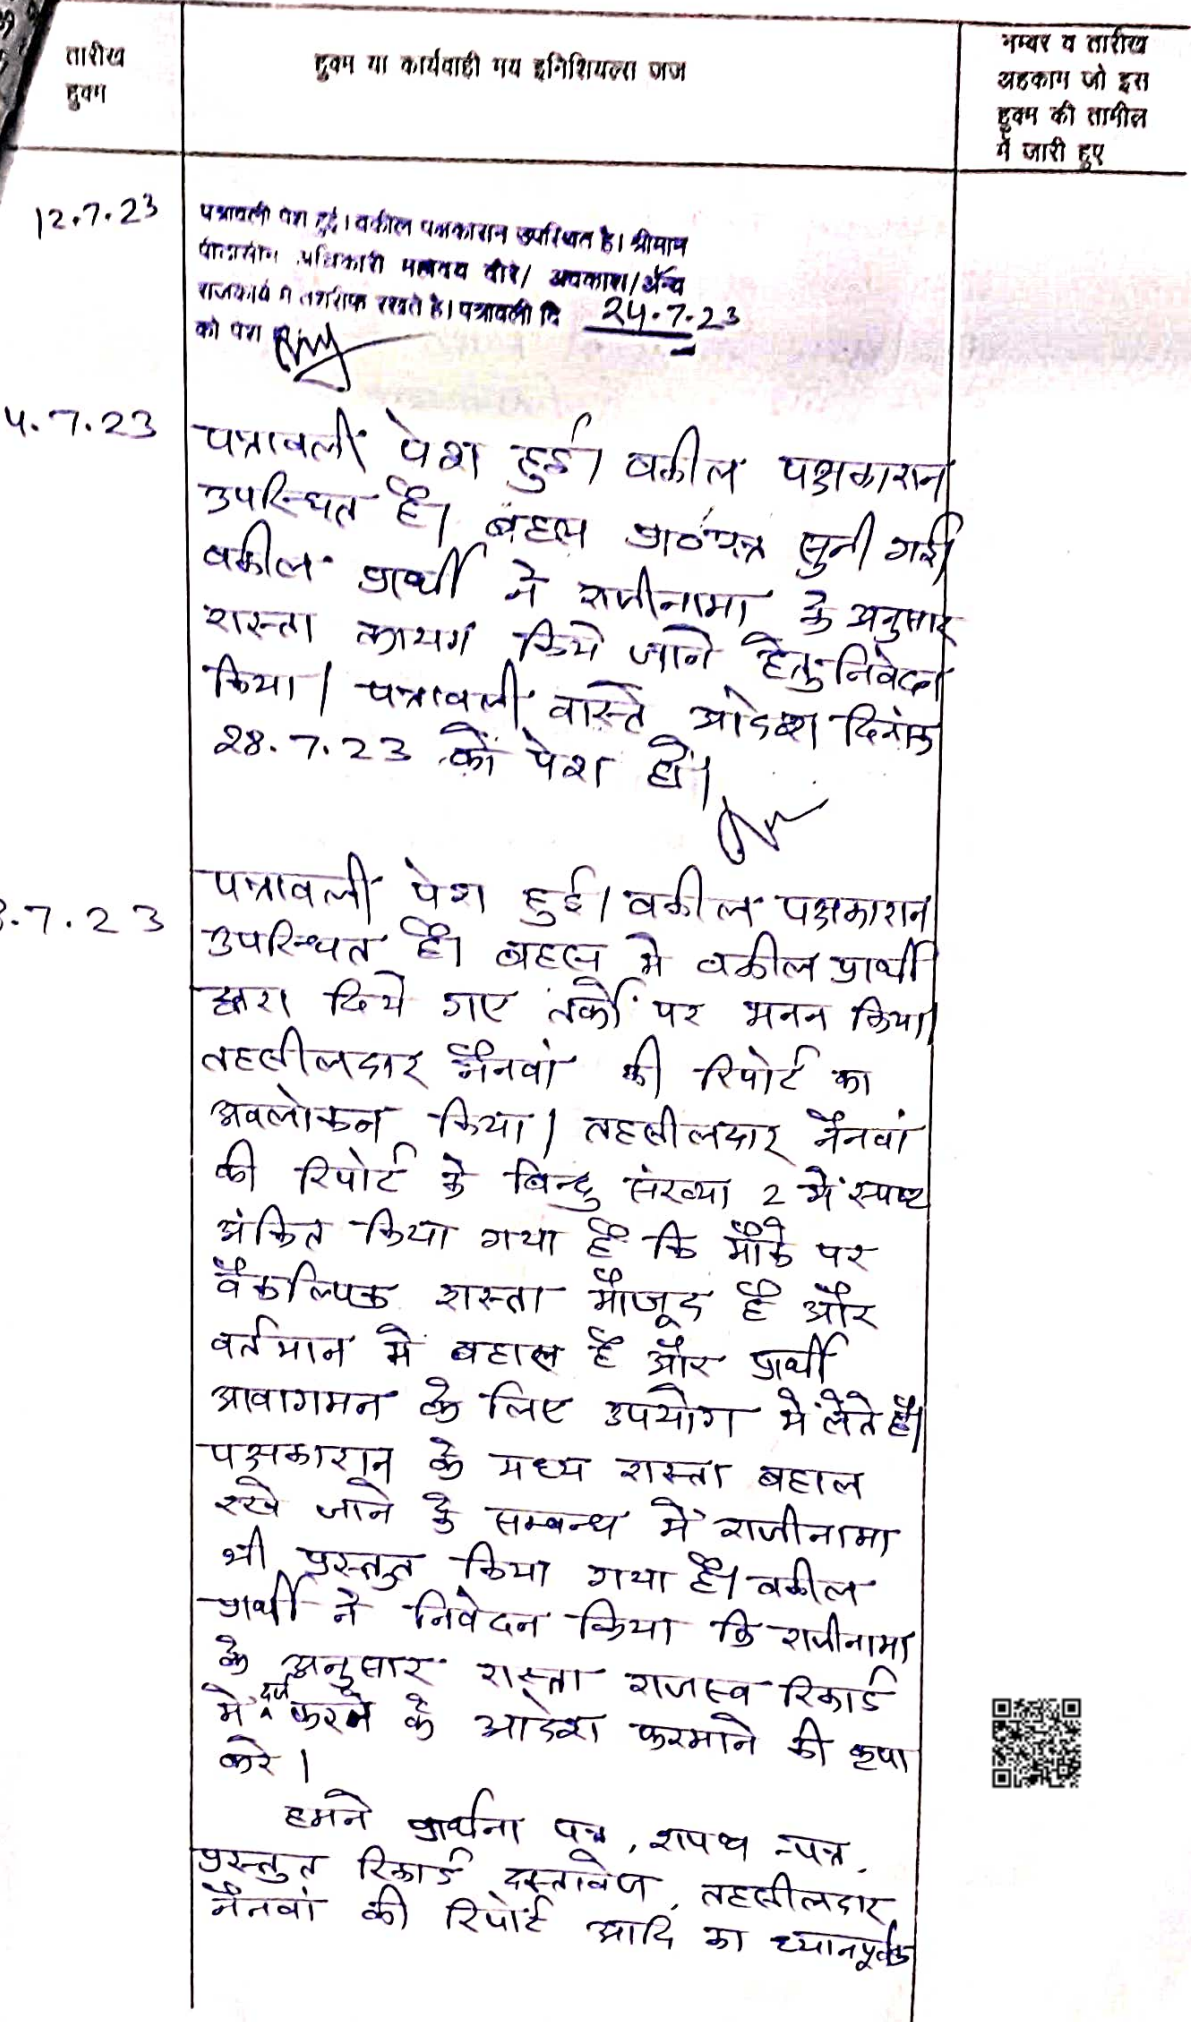 तारीख
हुक्म
हुक्म या कार्यवाही मय इनिशियल्स जज
नम्बर व तारीख
अहकाम जो इस
हुक्म की तामील
में जारी हुए
12.7.23
पत्रावली पेश हुई। वकील पक्षकारान उपस्थित है। श्रीमान
पीठासीन अधिकारी महोदय दौरे/ अवकाश/अन्य
राजकार्य में तशरीफ रखते है। पत्रावली दि 24.7.23
को पेश
4.7.23
पत्रावली पेश हुई। वकील पक्षकारान
उपस्थित है। बहस प्रा०पत्र सुनी गई।
वकील प्रार्थी ने राजीनामा के अनुसार
रास्ता कायम किये जाने हेतु निवेदन
किया। पत्रावली वास्ते आदेश दिनांक
28.7.23 को पेश हो।
.7.23
पत्रावली पेश हुई। वकील पक्षकारान
उपस्थित है। बहस मे वकील प्रार्थी
द्वारा दिये गए तर्को पर मनन किया।
तहसीलदार नैनवां की रिपोर्ट का
अवलोकन किया। तहसीलदार नैनवां
की रिपोर्ट के बिन्दु संख्या 2 में स्पष्ट
अंकित किया गया है कि मौके पर
वैकल्पिक रास्ता मौजूद है और
वर्तमान में बहाल है और प्रार्थी
आवागमन के लिए उपयोग में लेते है।
पक्षकारान के मध्य रास्ता बहाल
रखे जाने के सम्बन्ध में राजीनामा
भी प्रस्तुत किया गया है। वकील
प्रार्थी ने निवेदन किया कि राजीनामा
के अनुसार रास्ता राजस्व रिकार्ड
मे दर्ज करने के आदेश फरमाने की कृपा
करे।
हमने प्रार्थना पत्र, शपथ पत्र,
प्रस्तुत रिकार्ड दस्तावेज, तहसीलदार
नैनवां की रिपोर्ट आदि का ध्यानपूर्वक